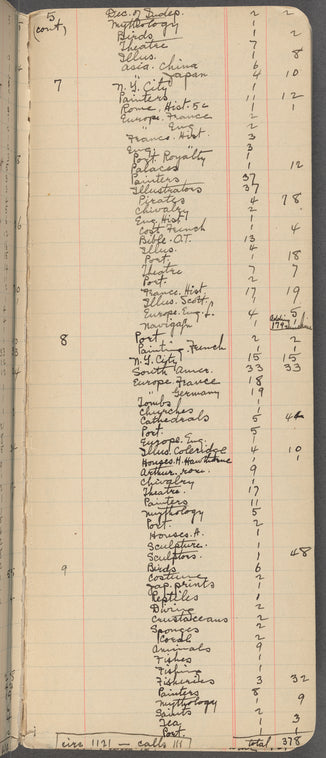 5 Dec. of Indep. 2 2
(cont) Mythology 1
Birds 1 2
Theatre 7
Illus. 1 8
Asia. China 6
" Japan 4 10
7 N.Y. City 1 1
Painters 11 12
Rome. Hist. 5c 1 1
Europe. France 2
" Eng 2
France. Hist. 3
Eng. 3
Port. Royalty 1
Palaces 1 12
Painters 37
Illustrators 37
Pirates 4 78
Chivalry 2
Eng. Hist. 1
Cost. French 1 4
Bible. O.T. 13
Illus. 4
Port. 1 18
Theatre 7 7
Port. 2
France. Hist. 17 19
Illus. Scott. 1
Europe. Eng. 4 5
Navigatn 1 1
8 Port 2 2
Painting. French 1 1
N.Y. City 15 15
South Amer. 33 33
Europe France 18
" Germany 19
Tombs 1
Churches 1
Cathedrals 5
Port. 5
Europe. Eng. 1
Illus. Coleridge 4 10
Houses. H. Hawthorne 1
Arthur. rom. 9
Chivalry 1
Theatre. 17
Painters 11
Mythology 5
Port. 2
Houses. A. 1
Sculpture. 1
Sculptors. 1 48
9 Birds 6
Costume 2
Jap. prints 1
Reptiles 1
Diving 2
Crustaceans 2
Sponges 2
Coral 2
Animals 9
Fishes 1
Fishing 1
Fisheries 3 32
Painters 8
Mythology 1 9
Saints 2
Sea 1 3
Port 1 1
circ 1121 — calls 111 total 378